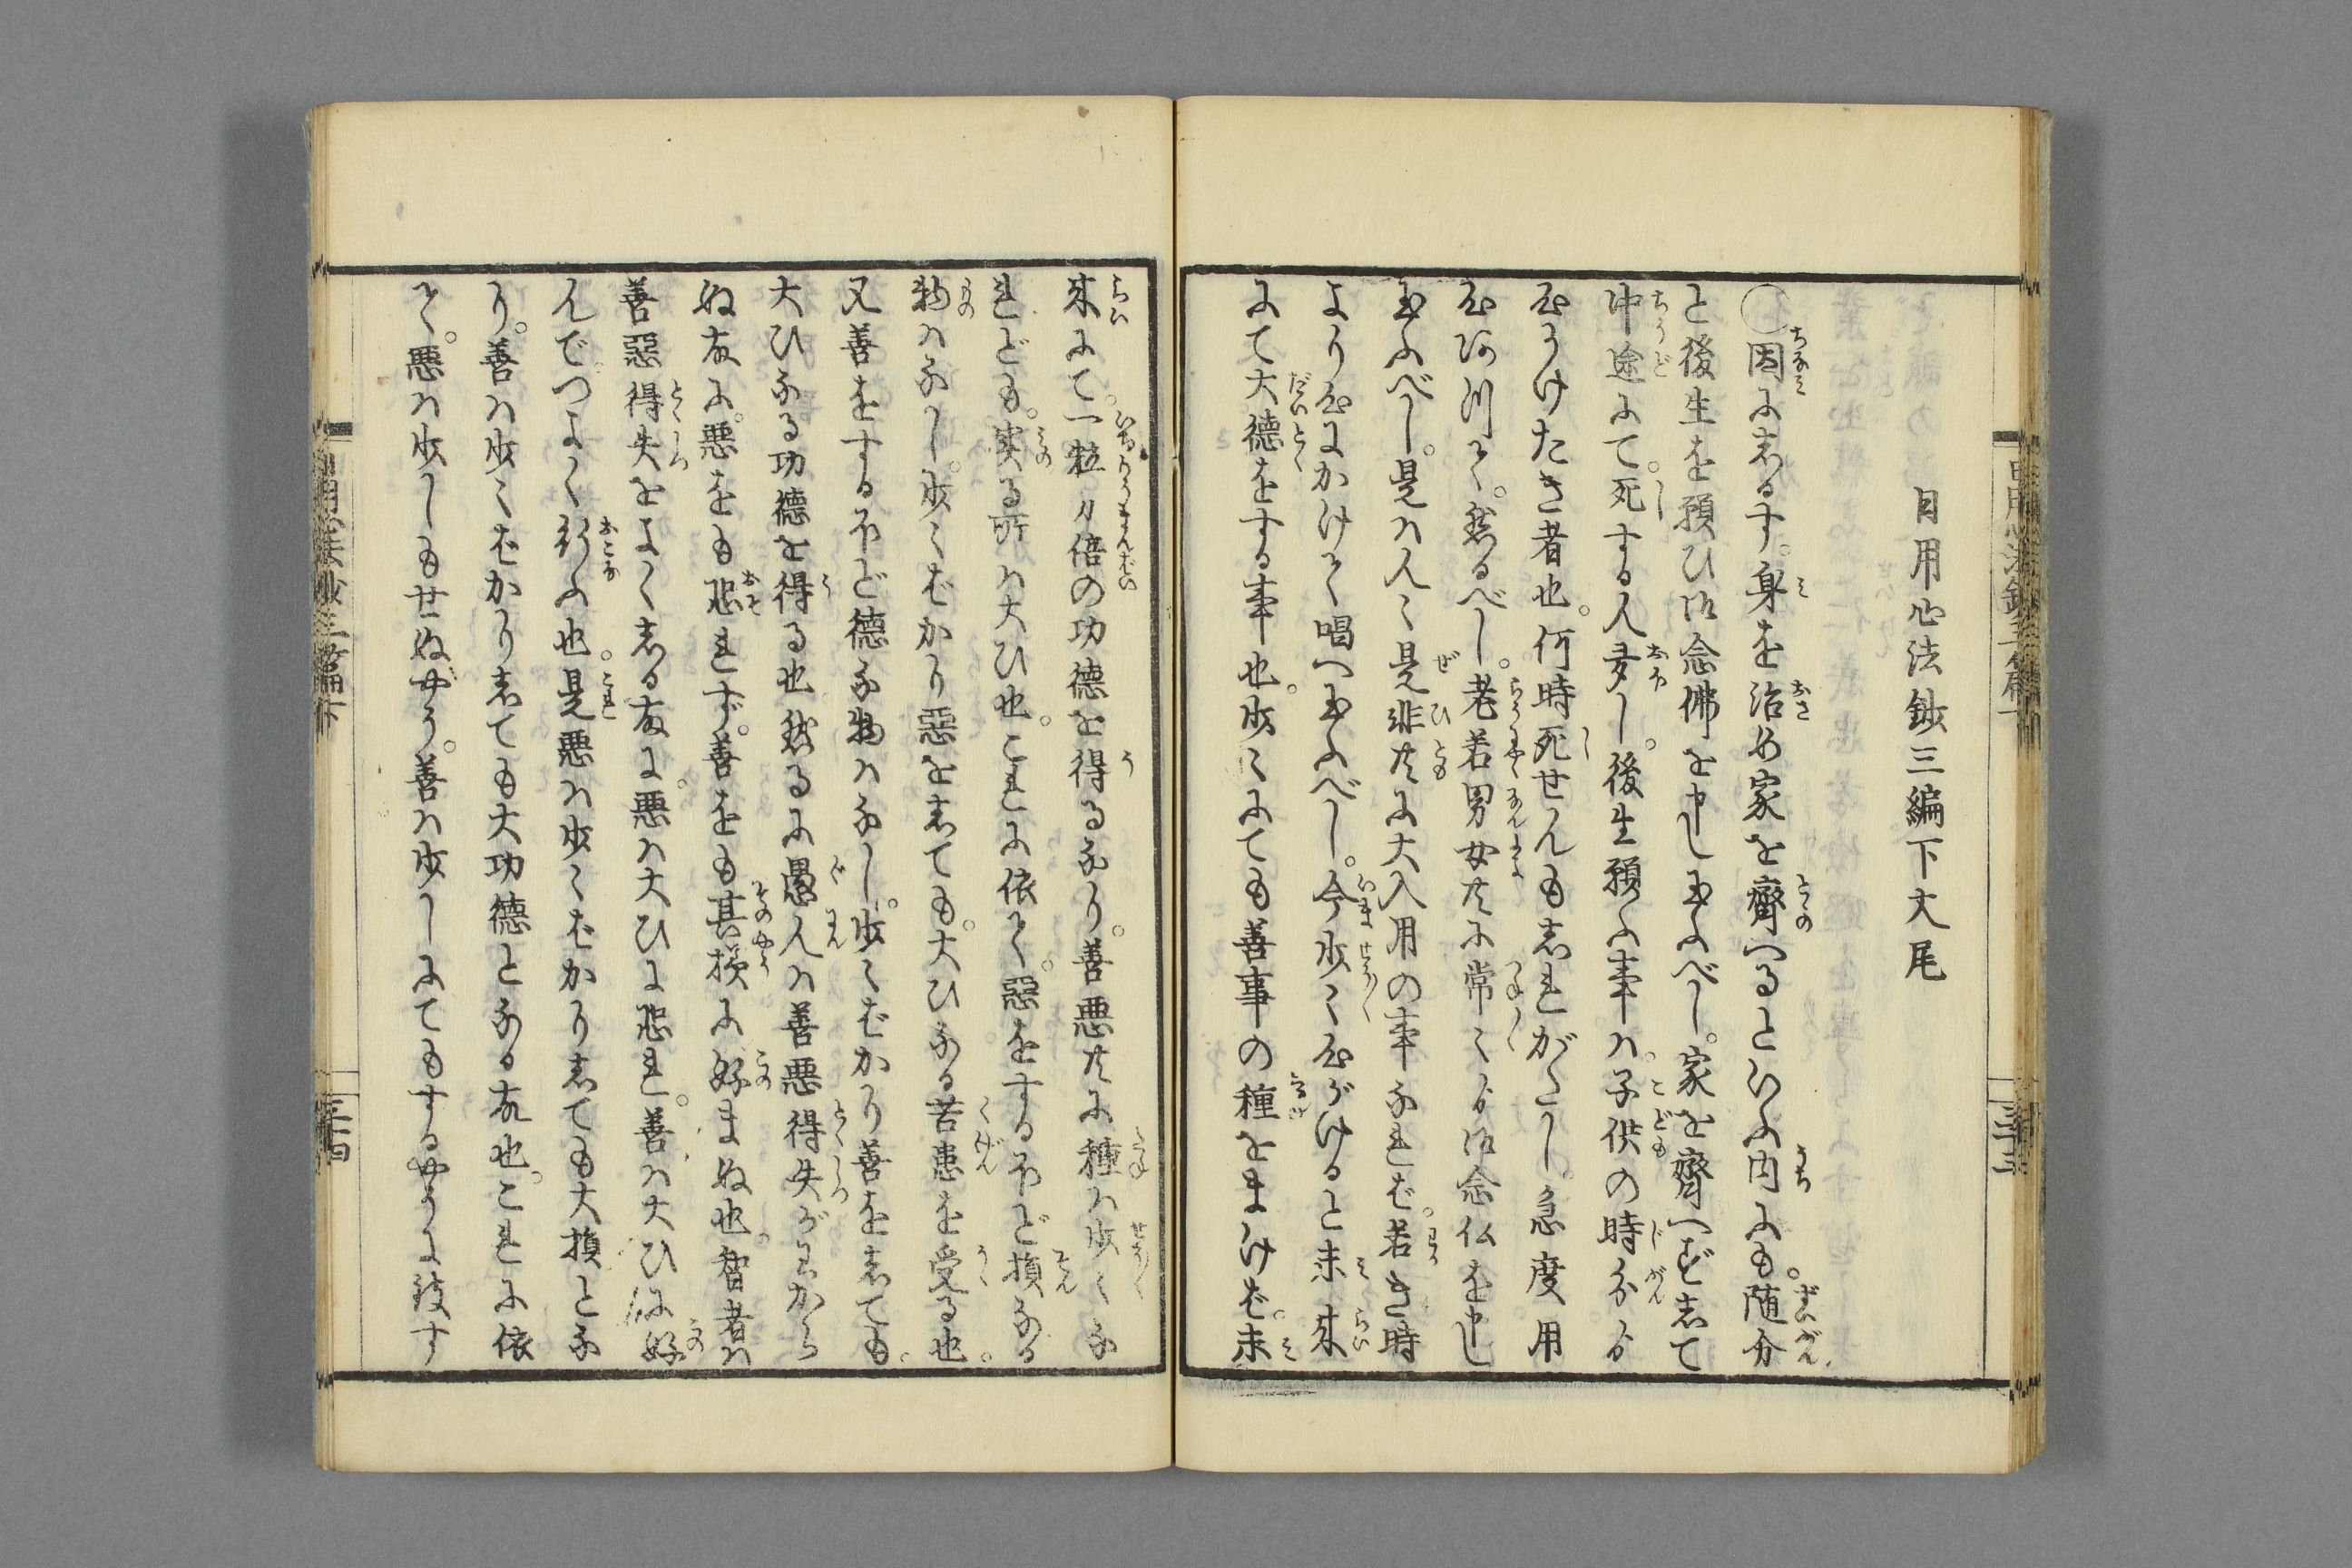 日用心法鈔三編下大尾
○因にしるす。身を治め家を齊へるといふ内にも。随分
と後生を願ひ御念佛を申し玉ふべし。家を齊へずして
中途にて。死する人多し。後生願ふ事ハ。子供の時分より
心うけたき者也。何時死せんもしれがたし。急度用
心珎川て。然るべし。老若男女共に常〻より御念仏を申し
玉ふべし。是ハ人〻是非共に大入用の事なれば。若き時
より心にかけて唱へ玉ふべし。今少〻心がけると未来
にて大徳をする事也。少〻にても善事の種をまけば。未
来にて。一粒万倍の功徳を得るなり。善悪共に種ハ少〻な
れども。実る所ハ大ひ也。これに依て。惡をするほど損なる
物ハなし。少〻ばかり惡をしても。大ひなる苦患を受る也。
又善をするほど徳な物ハなし。少〻ばかり善をしても。
大ひなる功徳を得る也然るに愚人ハ善悪得失がわから
ぬ故に。惡をも恐れず。善をも其様に好まぬ也。智者ハ
善惡得失をよくしる故に。悪ハ大ひに恐れ。善ハ大ひに好
んでつよく行ふ也。是悪ハ少〻ばかりしても大損とな
り。善ハ少〻ばかりしても大功徳となる故也。これに依
て。悪ハ少しもせぬやう。善ハ少しにてもするやうに致す
三十三
三十四